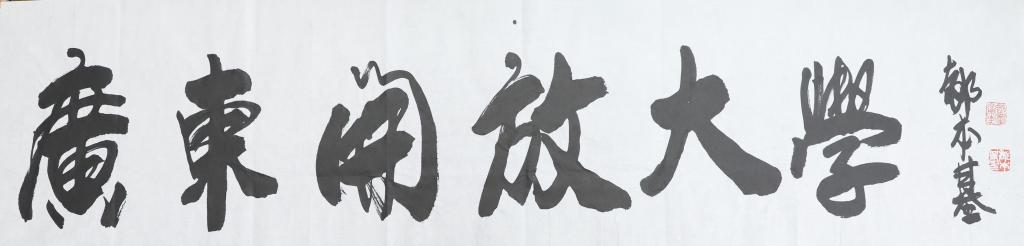 廣東開放大學
郗本基